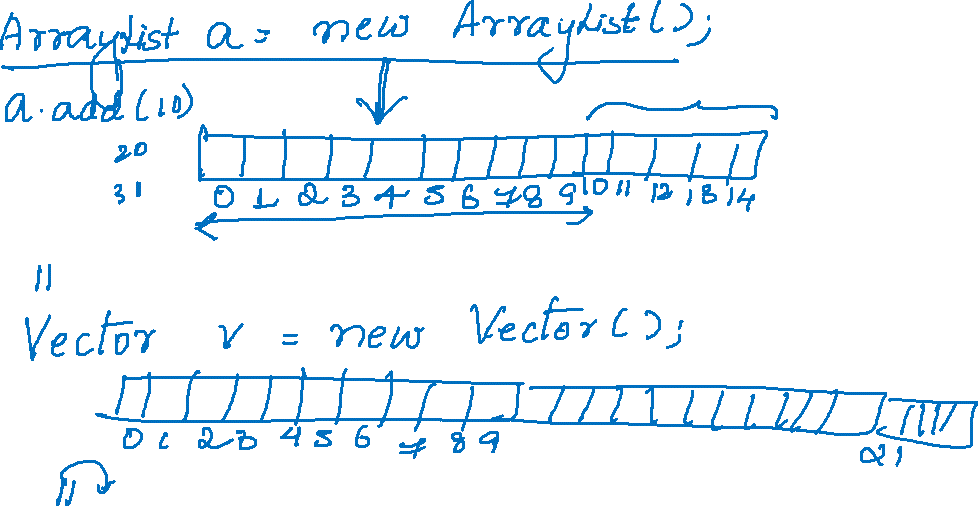 ArrayList a = new ArrayList();
a.add(10)
20
31
0 1 2 3 4 5 6 7 8 9 10 11 12 13 14
11
Vector v = new Vector();
0 1 2 3 4 5 6 7 8 9 21
11